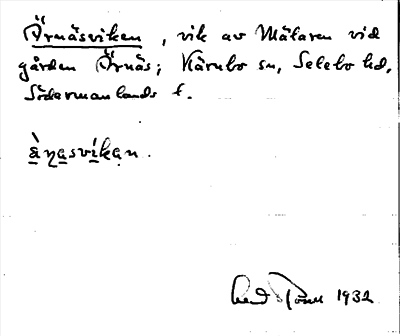 Örnäsviken, vik av Mälaren vid
gården Örnäs; Kärnbo sn, Selebo hd,
Södermanlands l.
1932